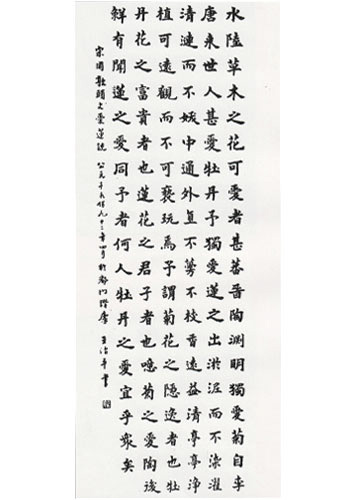 水陸草木之花可愛者甚蕃晉陶淵明獨愛菊自李
唐來世人甚愛牡丹予獨愛蓮之出淤泥而不染濯
清漣而不妖中通外直不蔓不枝香遠益清亭亭淨
植可遠觀而不可褻玩焉予謂菊花之隱逸者也牡
丹花之富貴者也蓮花之君子者也噫菊之愛陶後
鮮有聞蓮之愛同予者何人牡丹之愛宜乎衆矣
宋周敦頤之愛蓮說 公元千九佰九十二年四月於門 王治平書